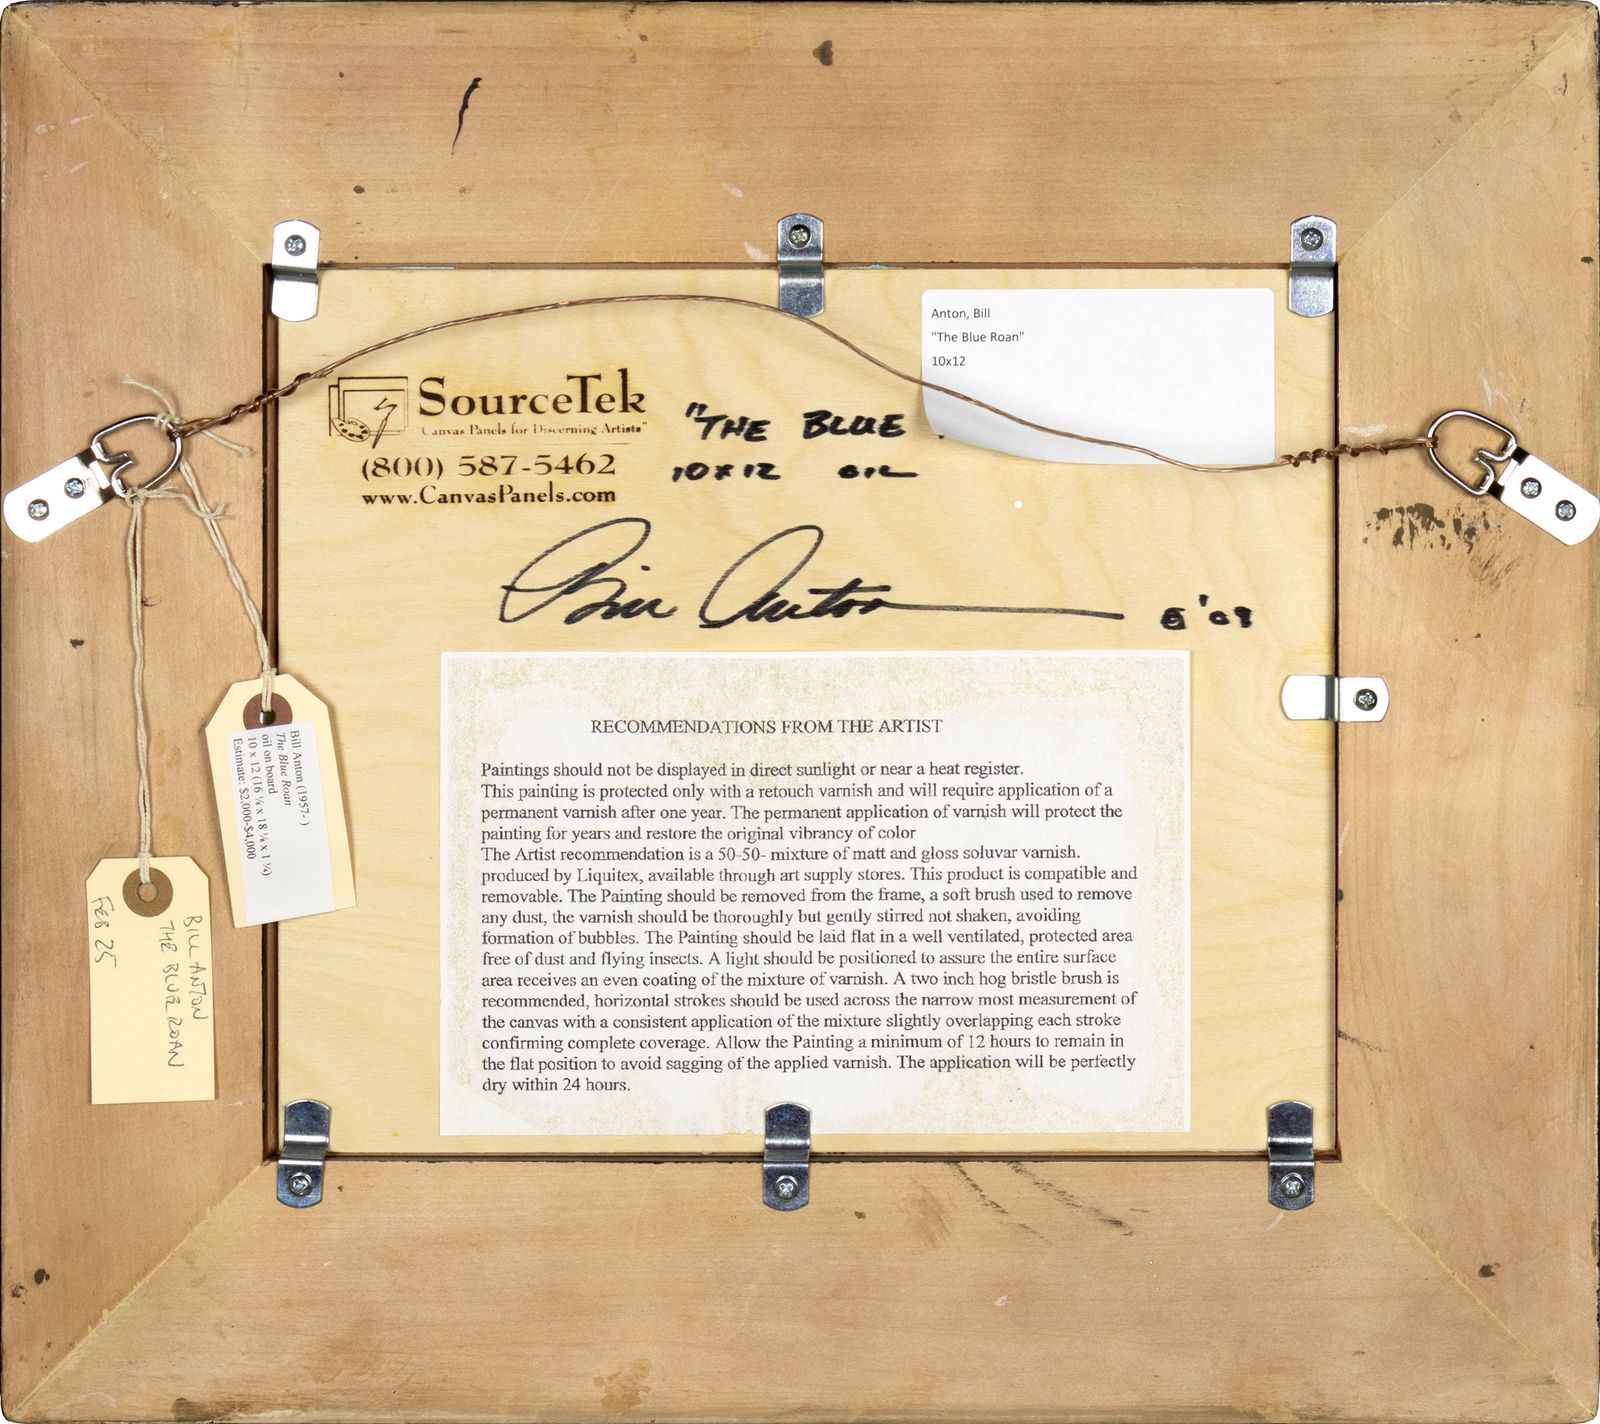 Anton, Bill
"The Blue Roan"
10x12
SourceTek
Canvas Panels for Discerning Artists"
(800) 587-5462
www.CanvasPanels.com
"THE BLUE
10 x 12 OIL
Bill Anton
'09
RECOMMENDATIONS FROM THE ARTIST
Paintings should not be displayed in direct sunlight or near a heat register.
This painting is protected only with a retouch varnish and will require application of a
permanent varnish after one year. The permanent application of varnish will protect the
painting for years and restore the original vibrancy of color
The Artist recommendation is a 50-50- mixture of matt and gloss soluvar varnish.
produced by Liquitex, available through art supply stores. This product is compatible and
removable. The Painting should be removed from the frame, a soft brush used to remove
any dust, the varnish should be thoroughly but gently stirred not shaken, avoiding
formation of bubbles. The Painting should be laid flat in a well ventilated, protected area
free of dust and flying insects. A light should be positioned to assure the entire surface
area receives an even coating of the mixture of varnish. A two inch hog bristle brush is
recommended, horizontal strokes should be used across the narrow most measurement of
the canvas with a consistent application of the mixture slightly overlapping each stroke
confirming complete coverage. Allow the Painting a minimum of 12 hours to remain in
the flat position to avoid sagging of the applied varnish. The application will be perfectly
dry within 24 hours.
Bill Anton (1957- )
The Blue Roan
oil on board
10 x 12 (16 ⅛ x 18 ⅛ x 1 ¼)
Estimate: $2,000-$4,000
BILL ANTON
THE BLUE ROAN
FEB 25